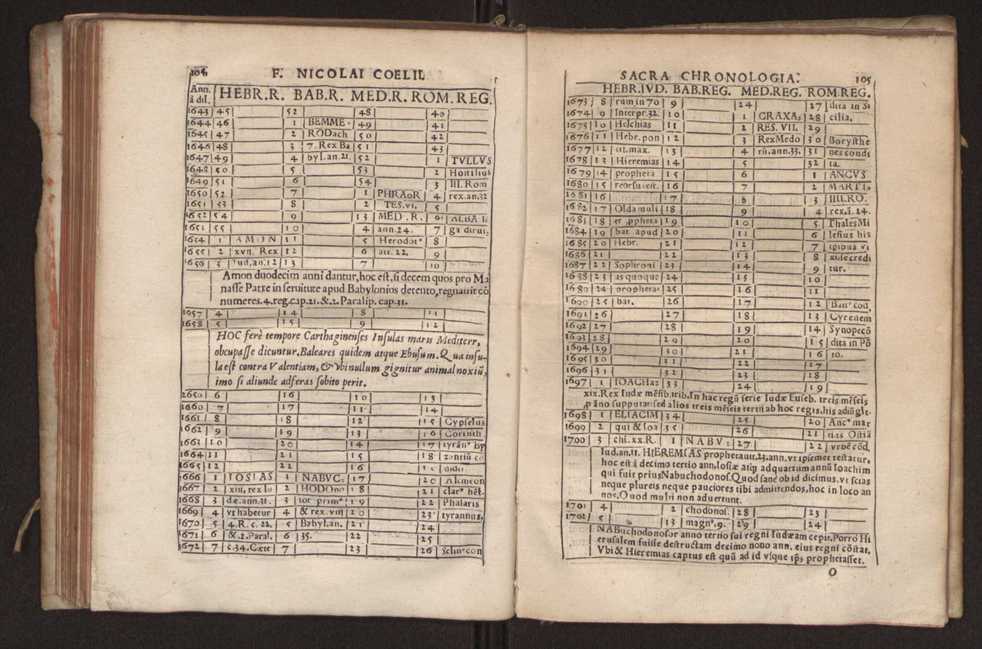 104 F. NICOLAI COELII
Ann. à dil. HEBR.R. BAB.R. MED.R. ROM.REG.
1643 45 52 48 40
1644 46 1 BEMME- 49 41
1645 47 2 RODach 50 42
1646 48 3 7. Rex Ba 51 43
1647 49 4 byl.an.21. 52 1 TVLLVS
1648 50 5 53 2 Hostilius
1649 51 6 54 3 III. Rom
1650 52 7 1 PHRAOR 4 rex.an.32
1651 53 8 2 TES.vi. 5
1652 54 9 3 MED.R. 6 ALBA lō
1653 55 10 4 ann.24. 7 ga dirui,
1654 1 AMON 11 5 Herodot 8
1655 2 xvii. Rex 12 6 9
1656 3 Iud.an.12 13 7 10
Amon duodecim anni dantur, hoc est, ii decem quos pro Ma
nasse Patre in seruitute apud Babylonios detento, regnauit cō
numeres. 4. reg. cap. 21. & 2. Paralip. cap. 33.
1657 4 14 8 11
1658 5 15 9 12
HOC ferè tempore Carthaginenses Insulas maris Mediterr.
occupasse dicuntur. Baleares quidem atque Ebusum. Qua insu-
la est contra Valentiam, & vbi nullum gignitur animal noxiū,
imo si aliunde adferas sobito perit.
1659 6 16 10 13
1660 7 17 11 14
1661 8 18 12 15 Cypselus
1662 9 19 13 16 Corinth
1663 10 20 14 17
1664 11 21 15 18
1665 12 22 16
1666 1 IOSIAS 1 NABVC- 17 20 Alcmeon
1667 2 xiii. rex Iu 2 HODOno 18 21
1668 3 dæ.an.31. 3 19 22 Phalaris
1669 4 vt habetur 4 & rex.vii 20 23 tyrannus,
1670 5 4.R.c.22. 5 Babyl.an. 21 24
1671 6 &.2.Paral. 6 35. 22 25
1672 7 c.34.Cœte 7 23 26
SACRA CHRONOLOGIA. 105
HEBR.IVD. BAB.REG. MED.REG. ROM.REG.
1673 8 rum in 70 9 24 27 dita in Si
1674 9 Interpr.32. 10 1 CRAXA; 28 cilia,
1675 10 Helchias 11 2 RES. VII. 29
1676 11 Hebr. pon 12 3 Rex Medo 30 Borysthe
1677 12 tit.max. 13 4 rū.ann.35. 31 nes condi
1678 13 Hieremias 14 5 32 ta.
1679 14 propheta 15 6 1 ANCVS
1680 15 16 7 2 MARTI.
1681 16 17 8 3 IIII.RO.
1682 17 Olda muli 18 9 4 rex.ā.24.
1683 18 er ,pphera 19 10 5 Thales Mi
1684 19 bat apud 20 11 6 lesius his
1685 20 Hebr. 21 12 7
1686 21 22 13 8
1687 22 Sophroni 23 14 9 tur.
1688 23 as quoque 24 15 10
1689 24 prophetas 25 16 11
1690 25 bat. 26 17 12
1691 26 27 18 13 Cyrenem
1692 27 28 19 14 Synopecō
1693 28 29 20 15 dita in Pō
1694 29 30 21 16 to.
1695 30 31 22 17
1696 31 32 23 18
1697 1 IOACHaz 33 24 19
xix. Rex Iudæ mēsib. trib. In hac regū serie Iudæ Euseb. treis mēseis
1698 1 ELIACIM 34 25 20 Anc mar
1699 2 qui & Ioa 35 26 21 nas Ostiā
1700 3 chi.xx.R. 1 NABV- 27 22 vrbē cōd.
Iud.an.11. HIEREMIAS prophetauit.23.ann.vt ipsemet testatur,
hoc est à decimo tertio ann. Iosiæ atq; ad quartum annū Ioachim
qui fuit prius Nabuchodonos. Quod sanè ob id dicimus, vt scias
neque plureis neque pauciores tibi admittendos, hoc in loco an
nos. Quod multi non aduertunt.
1701 4 2 chodonol. 28 23
1702 5 3 magn. 9. 29 24
NABuchodonosor anno tertio sui regni Iudæam cepit. Porro Hi
erusalem fuisse destructam decimo nono ann. eius regni cōstat,
Vbi & Hieremias captus est quā ad id vsque ips̄ prophetasset.
O